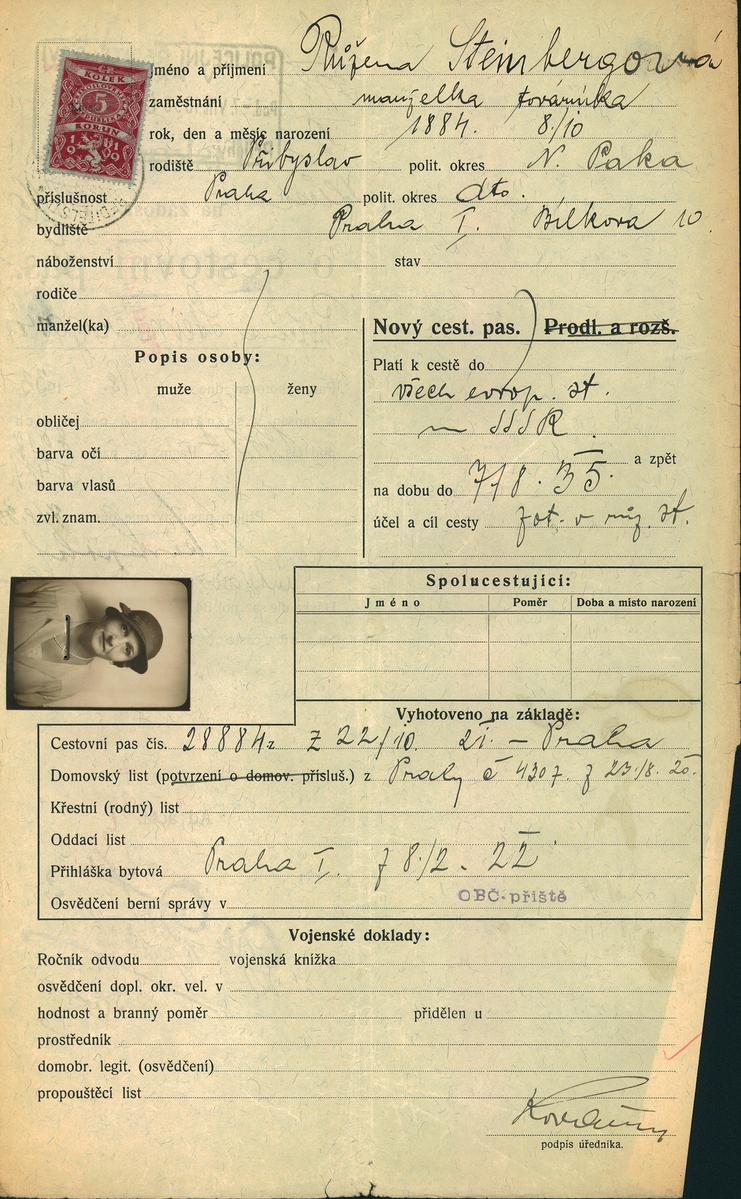 KOLEK
5
KORUN
Jméno a příjmení Růžena Steinbergová
zaměstnání manželka továrníka
rok, den a měsíc narození 1884. 8/10
rodiště Přibyslav polit. okres N. Paka
příslušnost Praha polit. okres dto.
bydliště Praha I. Bílkova 10.
náboženství stav
rodiče
manžel(ka)
Popis osoby:
muže ženy
obličej
barva očí
barva vlasů
zvl. znam.
Nový cest. pas. Prodl. a rozš.
Platí k cestě do
všech evrop. st.
SSSR
a zpět
na dobu do 7/8. 35.
účel a cíl cesty st.
Spolucestující:
Jméno Poměr Doba a místo narození
Vyhotoveno na základě:
Cestovní pas čís. 28884 z 22/10. Praha
Domovský list (potvrzení o domov. přísluš.) z Prahy č 4307. z 23./8. 20.
Křestní (rodný) list
Oddací list
Přihláška bytová Praha I. z 8./2. 22
Osvědčení berní správy v OBČ. příště
Vojenské doklady:
Ročník odvodu vojenská knížka
osvědčení dopl. okr. vel. v
hodnost a branný poměr přidělen u
prostředník
domobr. legit. (osvědčení)
propouštěcí list
podpis úředníka.